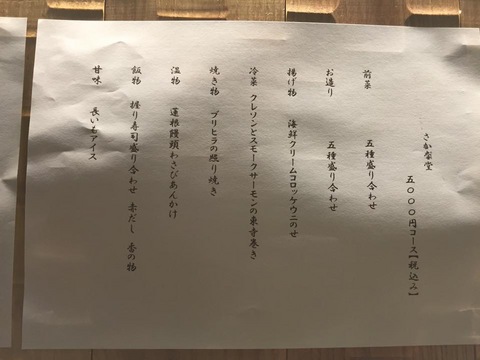 さかなや堂
五〇〇〇円コース【税込み】
前菜　五種盛り合わせ
お造り　五種盛り合わせ
揚げ物　海鮮クリームコロッケウニのせ
冷菜　クレソンとスモークサーモンの東寺巻き
焼き物　ブリヒラの照り焼き
温物　蓮根饅頭わさびあんかけ
飯物　握り寿司盛り合わせ　赤だし　香の物
甘味　長いもアイス